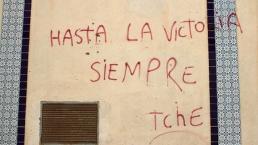 HASTA LA VICTORIA
SIEMPRE
TchE